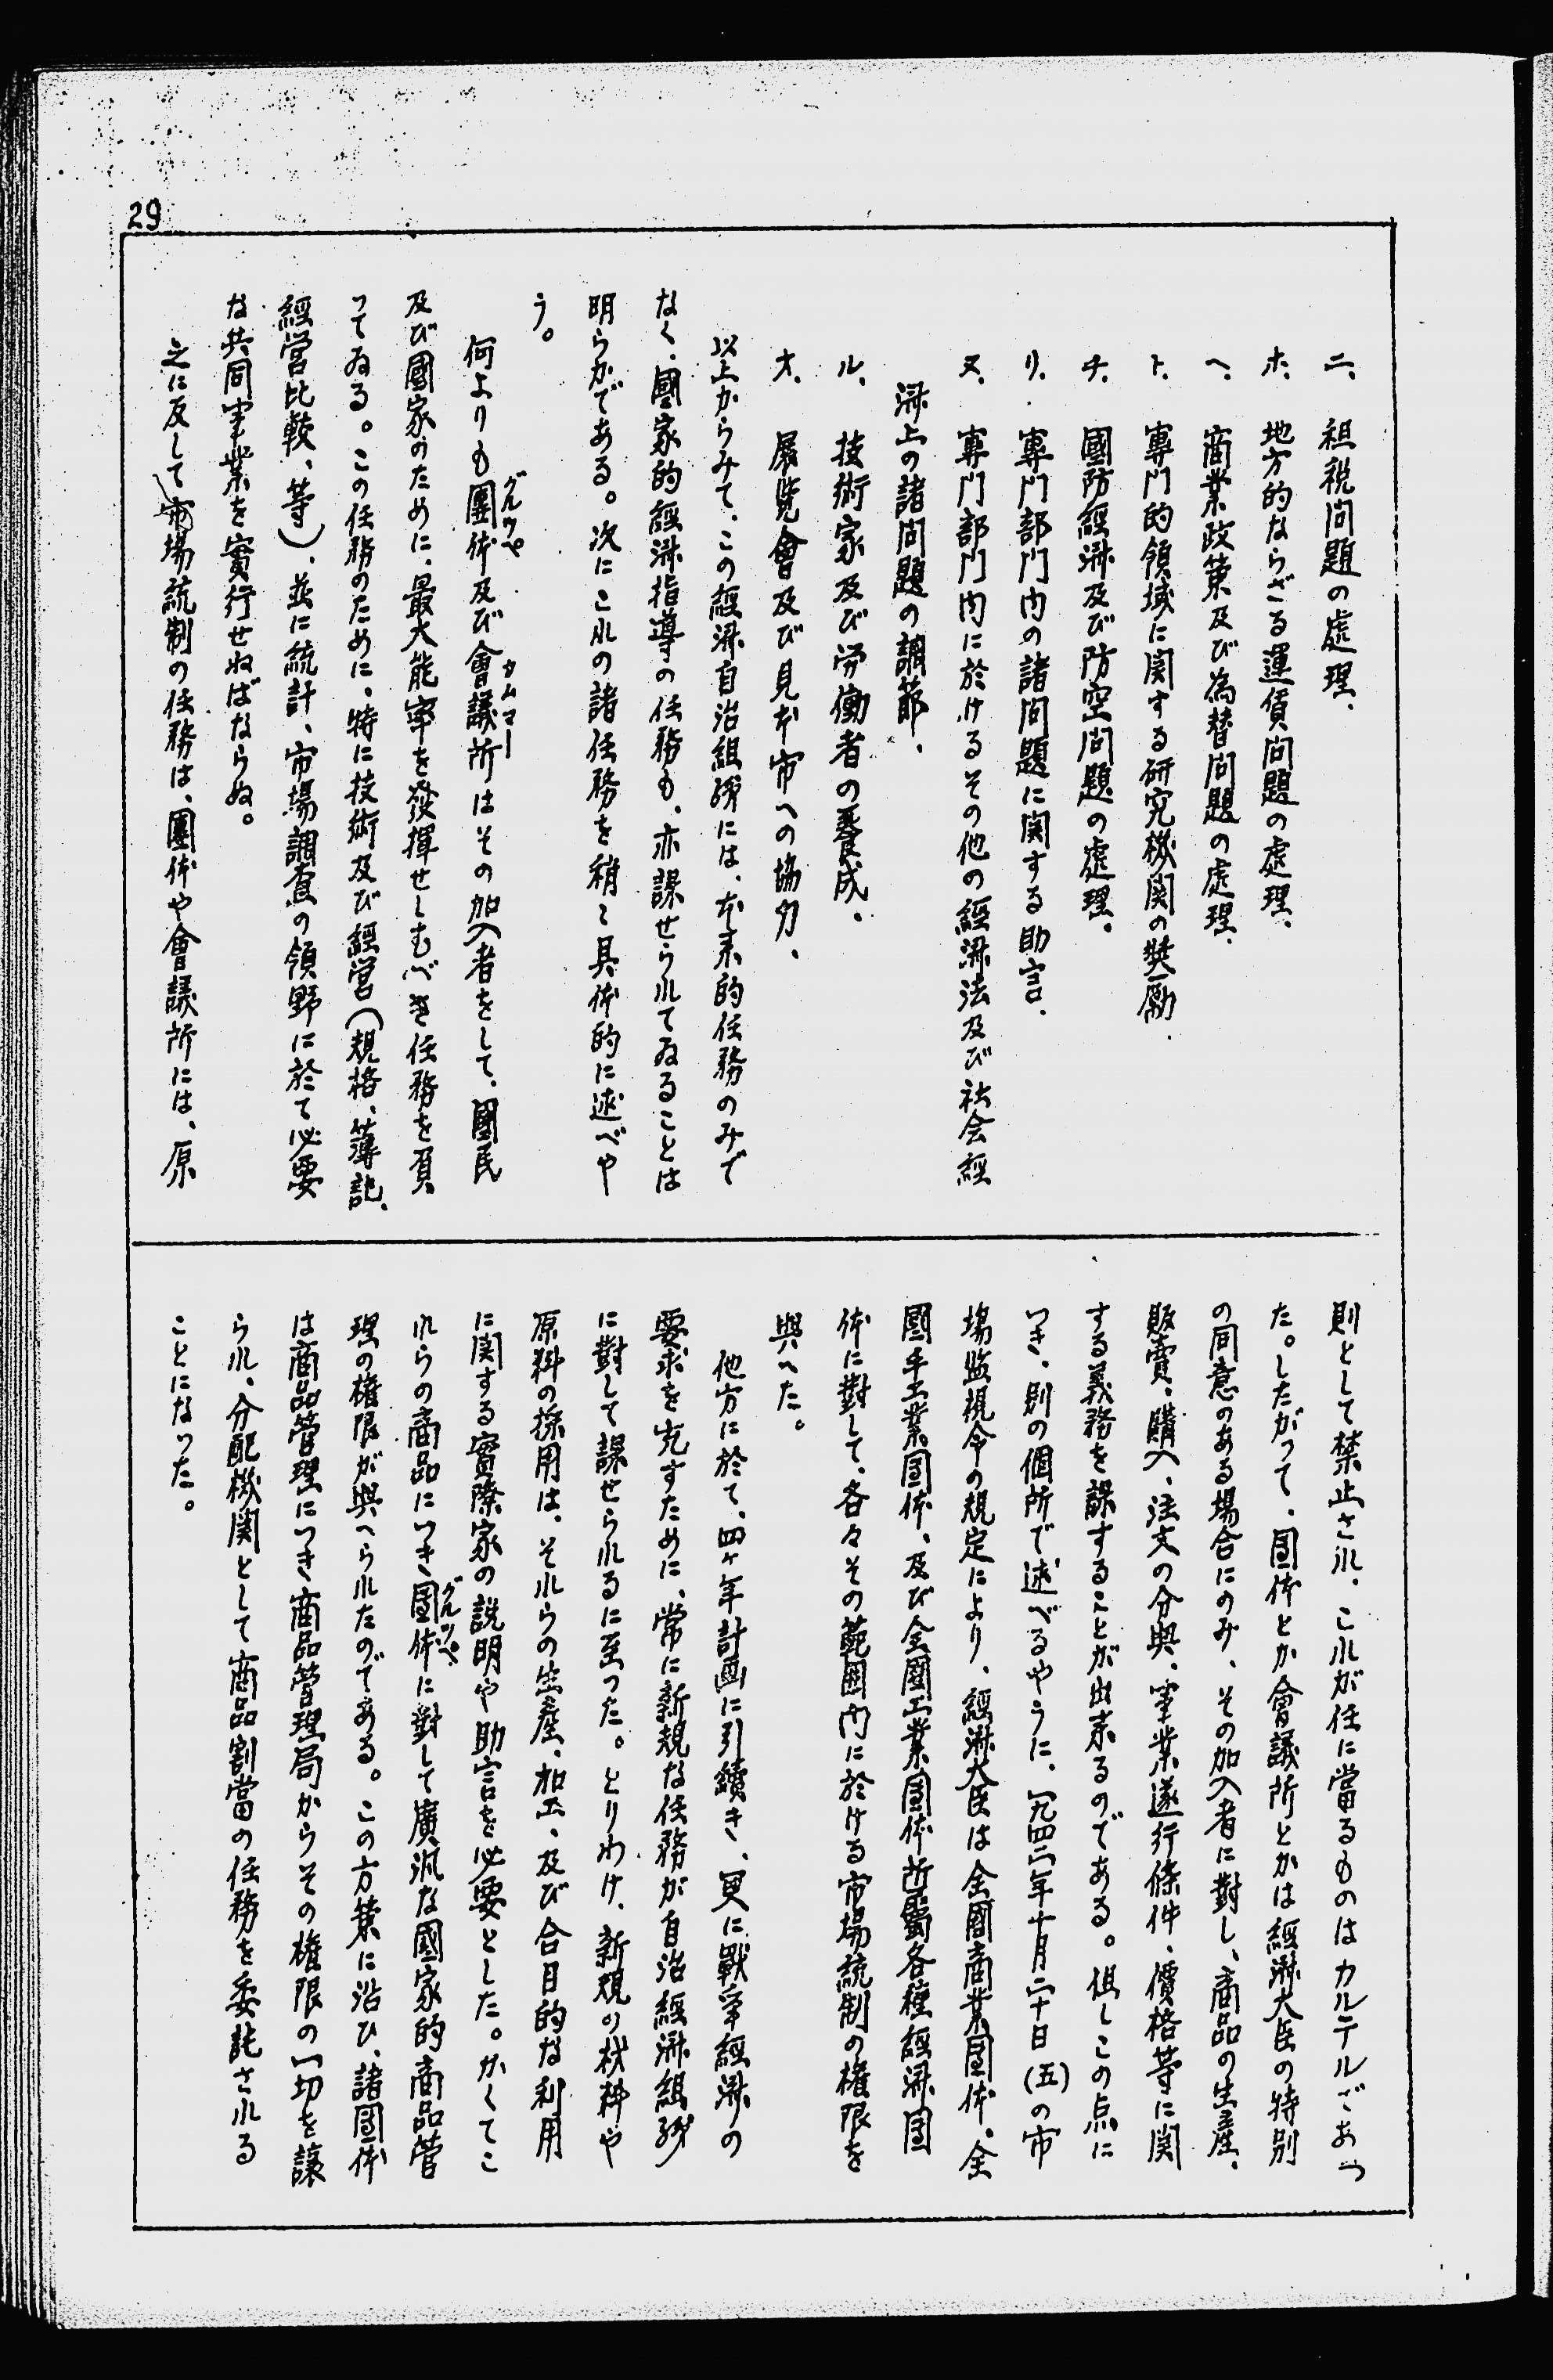 29
ニ、租税問題の處理、
ホ、地方的ならざる運賃問題の處理、
ヘ、商業政策及び為替問題の處理、
ト、專門的領域に関する研究機関の奬勵、
チ、國防經濟及び防空問題の處理。
リ、專門部門内の諸問題に関する助言、
ヌ、專門部門内に於けるその他の經濟法及び社会經
濟上の諸問題の調節、
ル、技術家及び労働者の養成。
オ、展覧會及び見本市への協力、
以上からみて、この經濟自治組織には、本来的任務のみで
なく、國家的經濟指導の任務も、亦課せられてゐることは
明らかである。次にこれの諸任務を稍々具体的に述べや
う。
何よりも團体及び會議所はその加入者をして、國民
グルッペ
カムマー
及び國家のために、最大能率を發揮せしむべき任務を負
つてゐる。この任務のために、特に技術及び經営(規格、簿記、
經営比較、等)、並に統計、市場調査の領野に於て必要
な共同事業を實行せねばならぬ。
之に反して市場統制の任務は、團体や會議所には、原
則として禁止され、これが任に當るものはカルテルであつ
た。したがつて、团体とか會議所とかは經濟大臣の特別
の同意のある場合にのみ、その加入者に對し、商品の生産、
販賣、購入、注文の分與、事業遂行條件、價格等に関
する義務を課することが出来るのである。但しこの点に
つき、別の個所で述べるやうに、一九四二年十月二十日(五)の市
場監視令の規定により、經濟大臣は全國商業团体、全
國手工業团体、及び全國工業团体所屬各種經濟团
体に對して、各々その範囲内に於ける市場統制の權限を
與へた。
他方に於て、四ヶ年計画に引續き、更に戰争經濟の
要求を充すために、常に新規な任務が自治經濟組織
に對して課せられるに至つた。とりわけ、新規の材料や
原料の採用は、それらの生産、加工、及び合目的な利用
に関する實際家の説明や助言を必要とした。かくてこ
れらの商品につき团体に對して廣汎な國家的商品管
グルッペ
理の權限が與へられたのである。この方策に沿ひ、諸团体
は商品管理につき商品管理局からその權限の一切を讓
られ、分配機関として商品割當の任務を委託される
ことになつた。